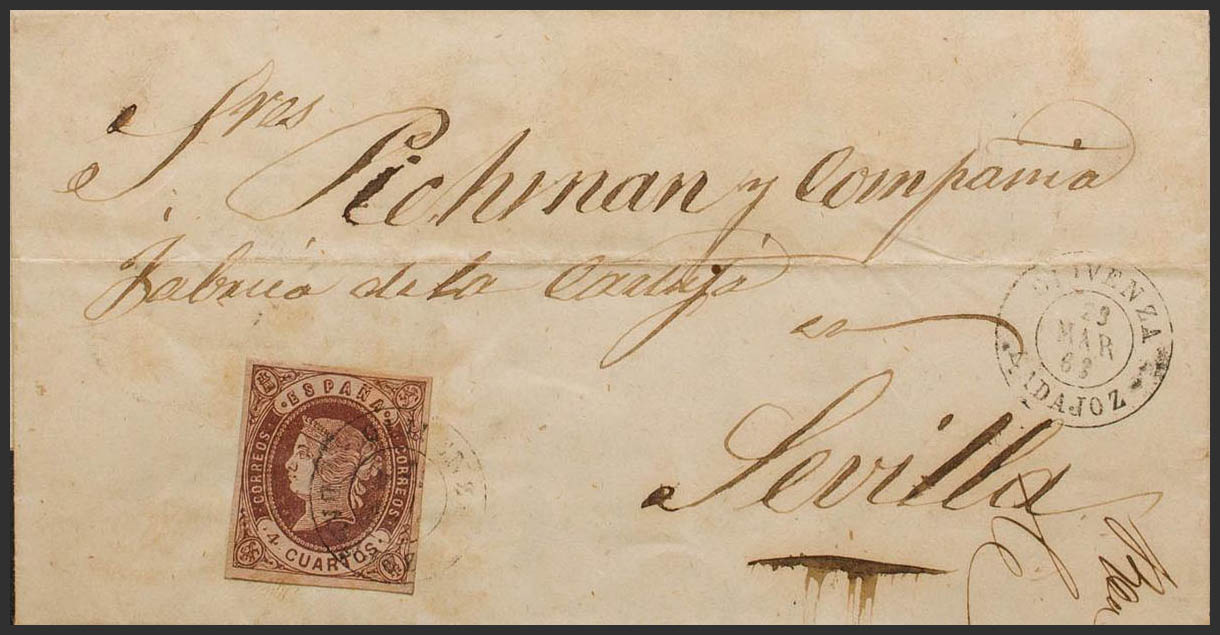 Sres Pichman y Compañia
Fabrica de la Cartuja
en
Sevilla
OLIVENZA
23
MAR
63
BADAJOZ
ESPAÑA
CORREOS
CORREOS
4 CUARTOS